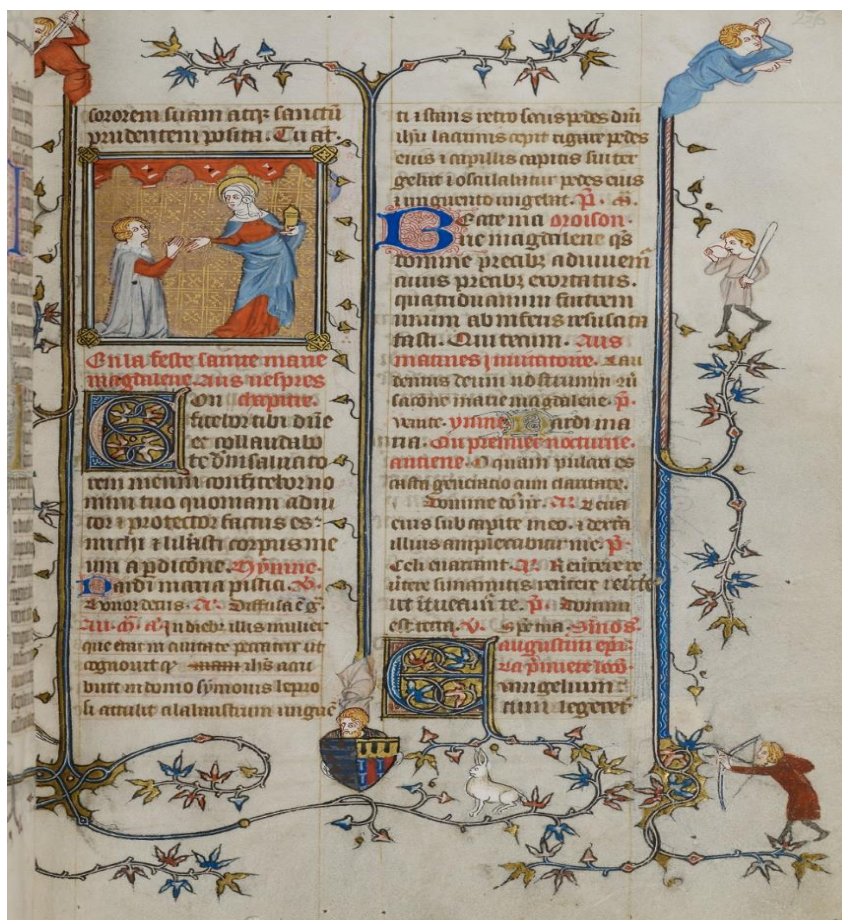 sororem suam atqz sanctū
prudentem posita. Tu aūt.
En la feste sainte marie
magdalene. Aus vespres
chapitre.
Con
fitebor tibi dñe
et collaudabo
te dm̄ saluato
rem meum confitebor no
mini tuo quoniam adiu
tor ⁊ protector factus es
michi ⁊ lib̄asti corpus me
um a p̄dicōne. Hymne.
Pardi maria pistica. V̄.
Diffusa ē g̃.
In dieb; illis mulier
que erat in ciuitate peccatrix ut
cognouit q̄ ihs̄ accu
buit in domo symonis lepro
si attulit alabaustrum unguē
ti ⁊ stans retro secus pedes dn̄i
ihū lacrimis cepit rigare pedes
eius ⁊ capillis capitis sui ter
gebat ⁊ osculabatur pedes eius
⁊ unguento ungebat. p̄. M̄.
Beate ma oroison.
rie magdalene qs̄
domine precib; adiuuem̄
cuius precib; exoratus.
quatriduanum fratrem
ab inferis resuscita
sti. Qui tecum. Aus
matines inuitatoire. Lau
demus deum nostrum
marie magdalene. p̄.
venite. ymne. Pardi ma
ria. Ou premier nocturne.
antiene. O quam pulcra es
casta generacio cum claritate.
Leua
eius sub capite meo. ⁊ dextra
illius amplexabitur me. p̄.
Celi enarrant. Reuertere re
uertere sunamitis reuertere reuerte
re ut intueam̄ te. p̄. Domini
est terra. V̄. Specia. Sm̄o s̄.
augustini ep̄i
la p̄miere leco̅.
Euangelium
cum legeret̄